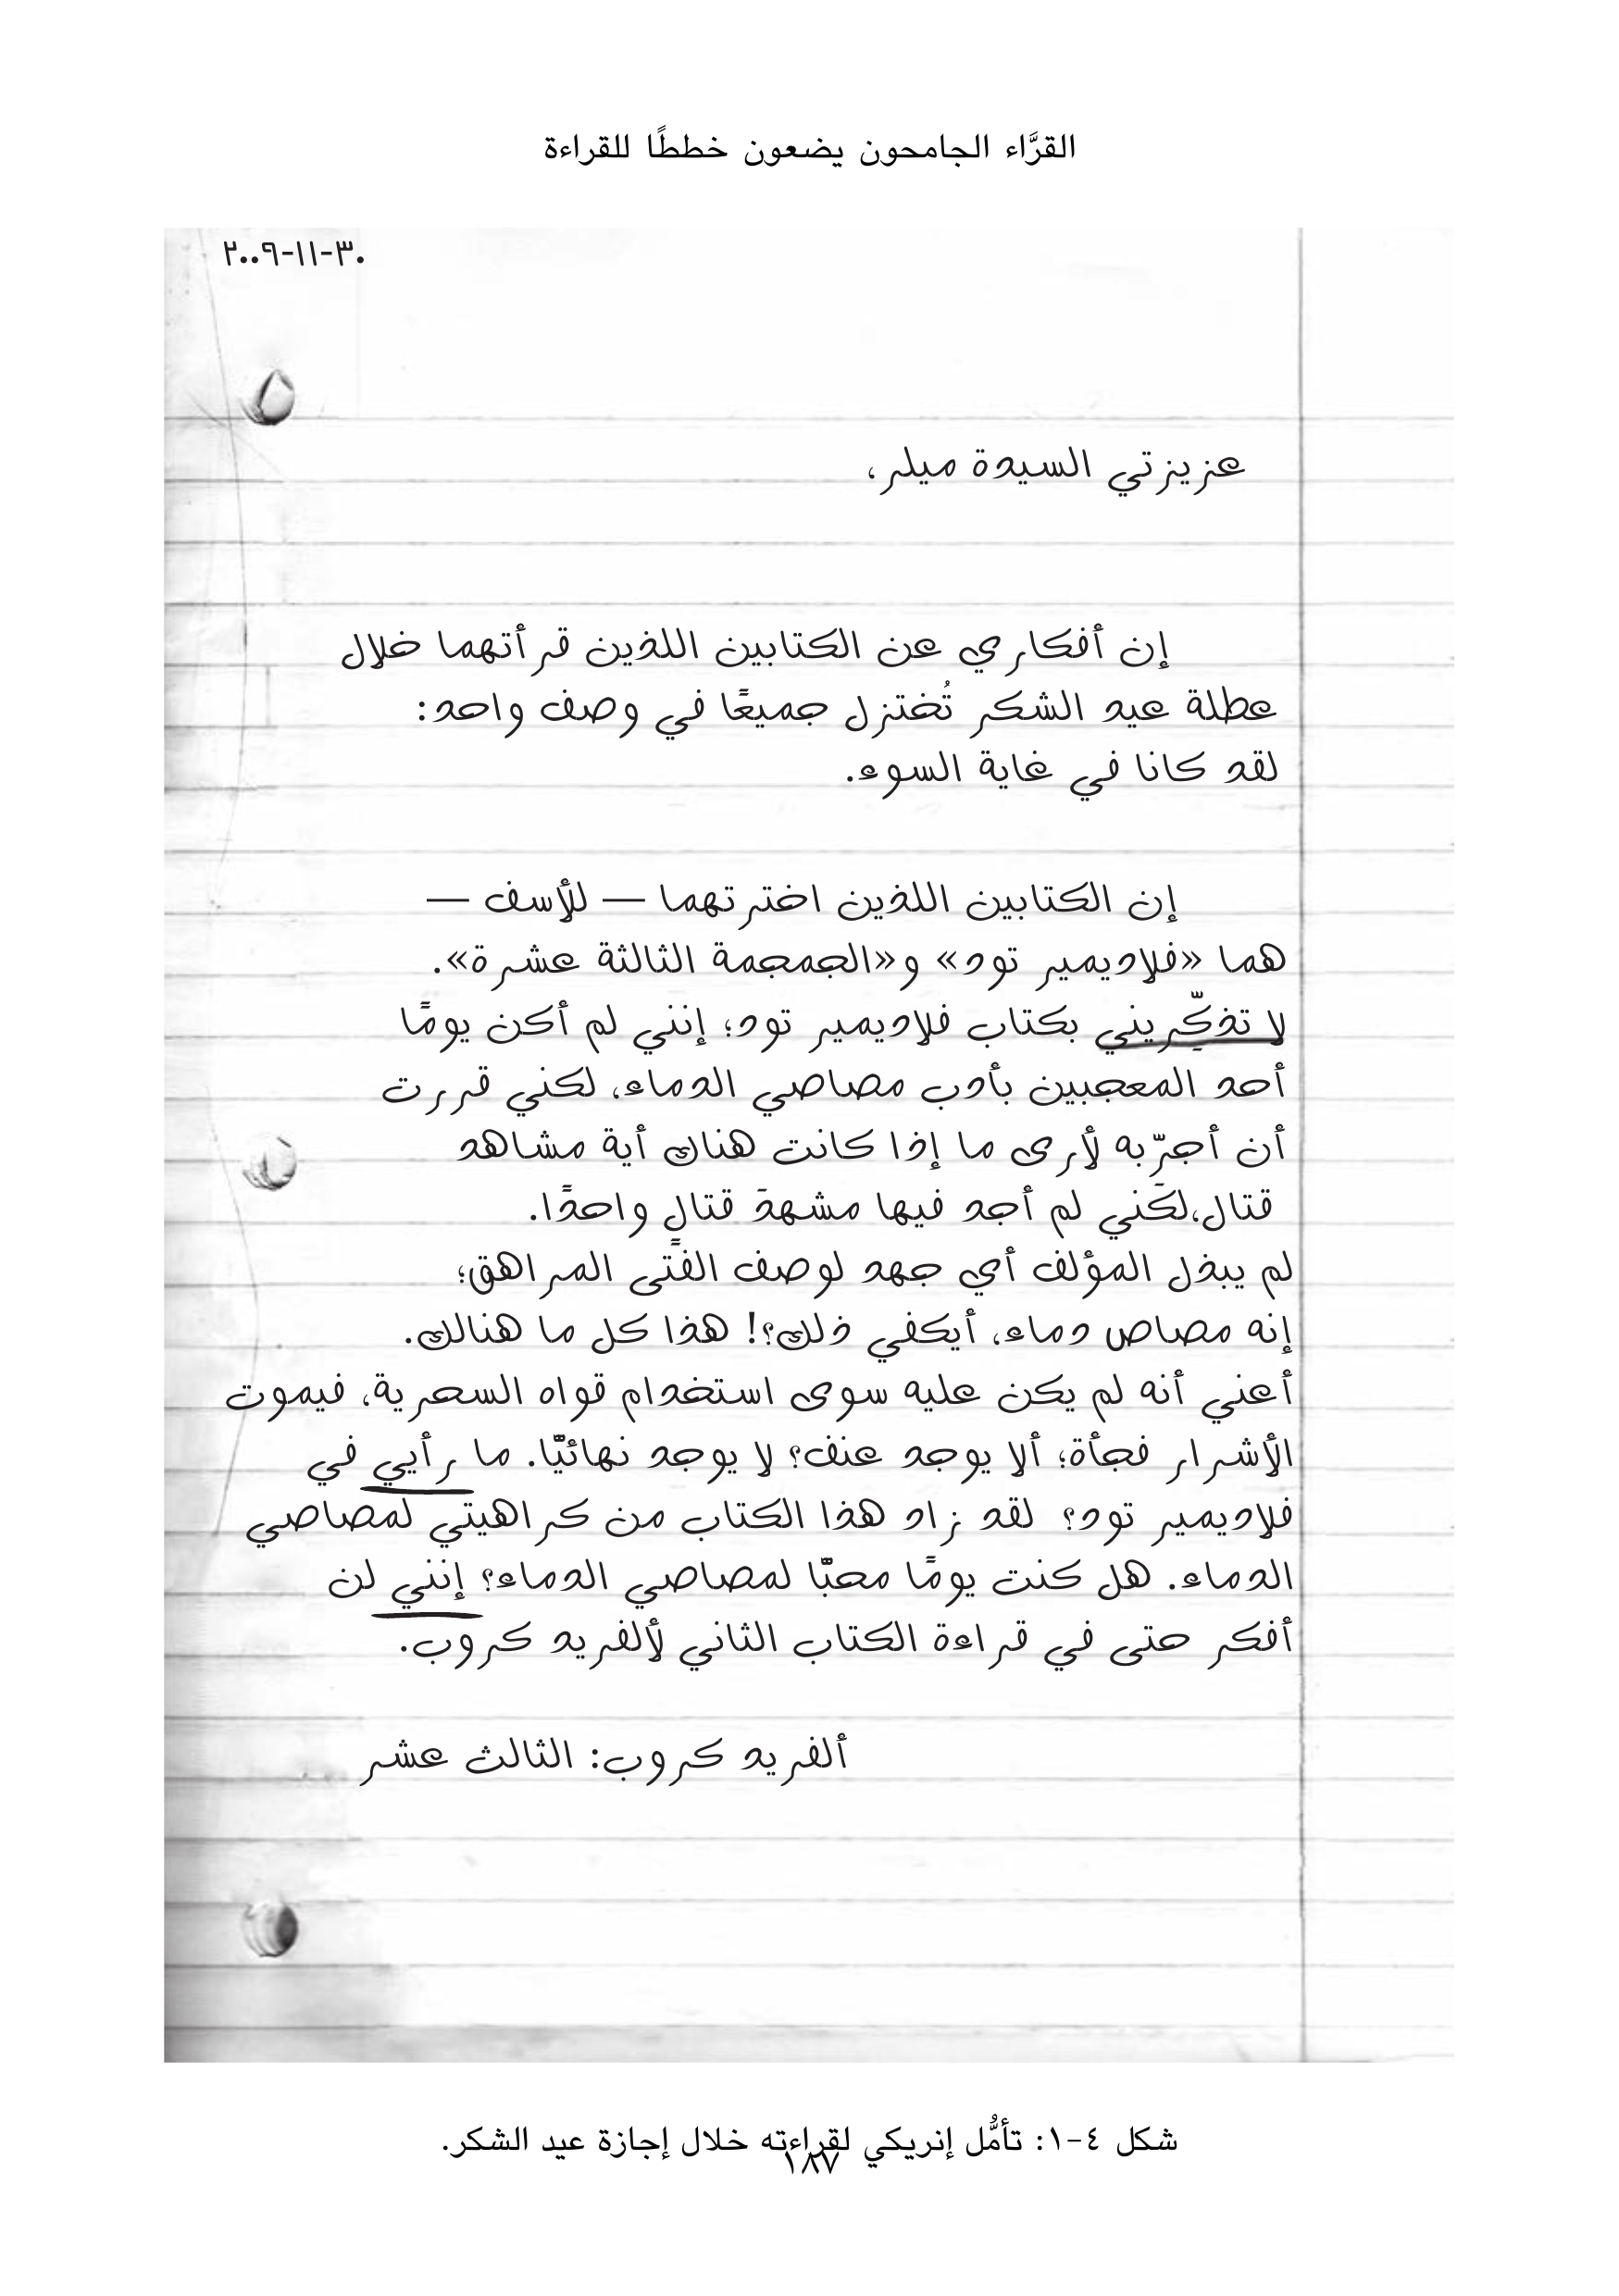 القرَّاء الجامحون يضعون خططًا للقراءة
٣٠-١١-٢٠٠٩
عزيزتي السيدة ميلر،
إن أفكاري عن الكتابين اللذين قرأتهما خلال
عطلة عيد الشكر تُختزل جميعًا في وصف واحد:
لقد كانا في غاية السوء.
إن الكتابين اللذين اخترتهما — للأسف —
هما «فلاديمير تود» و«الجمجمة الثالثة عشرة».
لا تذكّريني بكتاب فلاديمير تود؛ إنني لم أكن يومًا
أحد المعجبين بأدب مصاصي الدماء، لكني قررت
أن أجرّبه لأرى ما إذا كانت هناك أية مشاهد
قتال،لكَني لم أجد فيها مشهدَ قتالٍ واحدًا.
لم يبذل المؤلف أي جهد لوصف الفتًى المراهق؛
إنه مصاص دماء، أيكفي ذلك؟! هذا كل ما هنالك.
أعني أنه لم يكن عليه سوى استخدام قواه السحرية، فيموت
الأشرار فجأة؛ ألا يوجد عنف؟ لا يوجد نهائيًّا. ما رأيي في
فلاديمير تود؟ لقد زاد هذا الكتاب من كراهيتي لمصاصي
الدماء. هل كنت يومًا محبًّا لمصاصي الدماء؟ إنني لن
أفكر حتى في قراءة الكتاب الثاني لألفريد كروب.
ألفريد كروب: الثالث عشر
شكل ٤-١: تأمُّل إنريكي لقراءته خلال إجازة عيد الشكر.
١٨٧